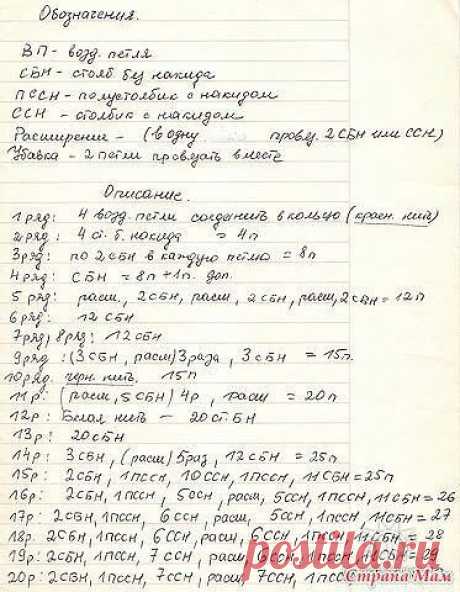 Обозначения.
ВП - возд. петля
СБН - столб. без накида
ПССН - полустолбик с накидом
ССН - столбик с накидом
Расширение - (в одну провяз. 2 СБН или ССН)
Убавка - 2 петли провязать вместе
Описание.
1 ряд: 4 возд. петли соединить в кольцо (красн. нить)
2 ряд: 4 ст. б. накида = 4п
3 ряд: по 2 СБН в каждую петлю = 8п
4 ряд: СБН = 8п + 1п. доп.
5 ряд: расш, 2СБН, расш, 2СБН, расш, 2СБН = 12п
6 ряд: 12 СБН
7 ряд, 8 ряд: 12 СБН
9 ряд: (3СБН, расш) 3 раза, 3СБН = 15п.
10 ряд. черн. нить. 15п
11р: (расш, 5СБН) 4р, расш = 20п
12р: Белая нить - 20 ст. БН
13р: 20СБН
14р: 3СБН, (расш) 5раз, 12СБН = 25п
15р: 2СБН, 1ПССН, 10ССН, 1ПССН, 11СБН = 25п
16р: 2СБН, 1ПССН, 5ССН, расш, 5ССН, 1ПССН, 11СБН = 26
17р: 2СБН, 1ПССН, 6ССН, расш, 5ССН, 1ПССН, 11СБН = 27
18р: 2СБН, 1ПССН, 6ССН, расш, 6ССН, 1ПССН, 11СБН = 28
19р: 2СБН, 1ПССН, 7ССН, расш, 6ССН, 1ПССН, 11СБН = 29
20р: 2СБН, 1ПССН, 7ССН, расш, 7ССН, 1ПССН
Страна Мам
postila.ru